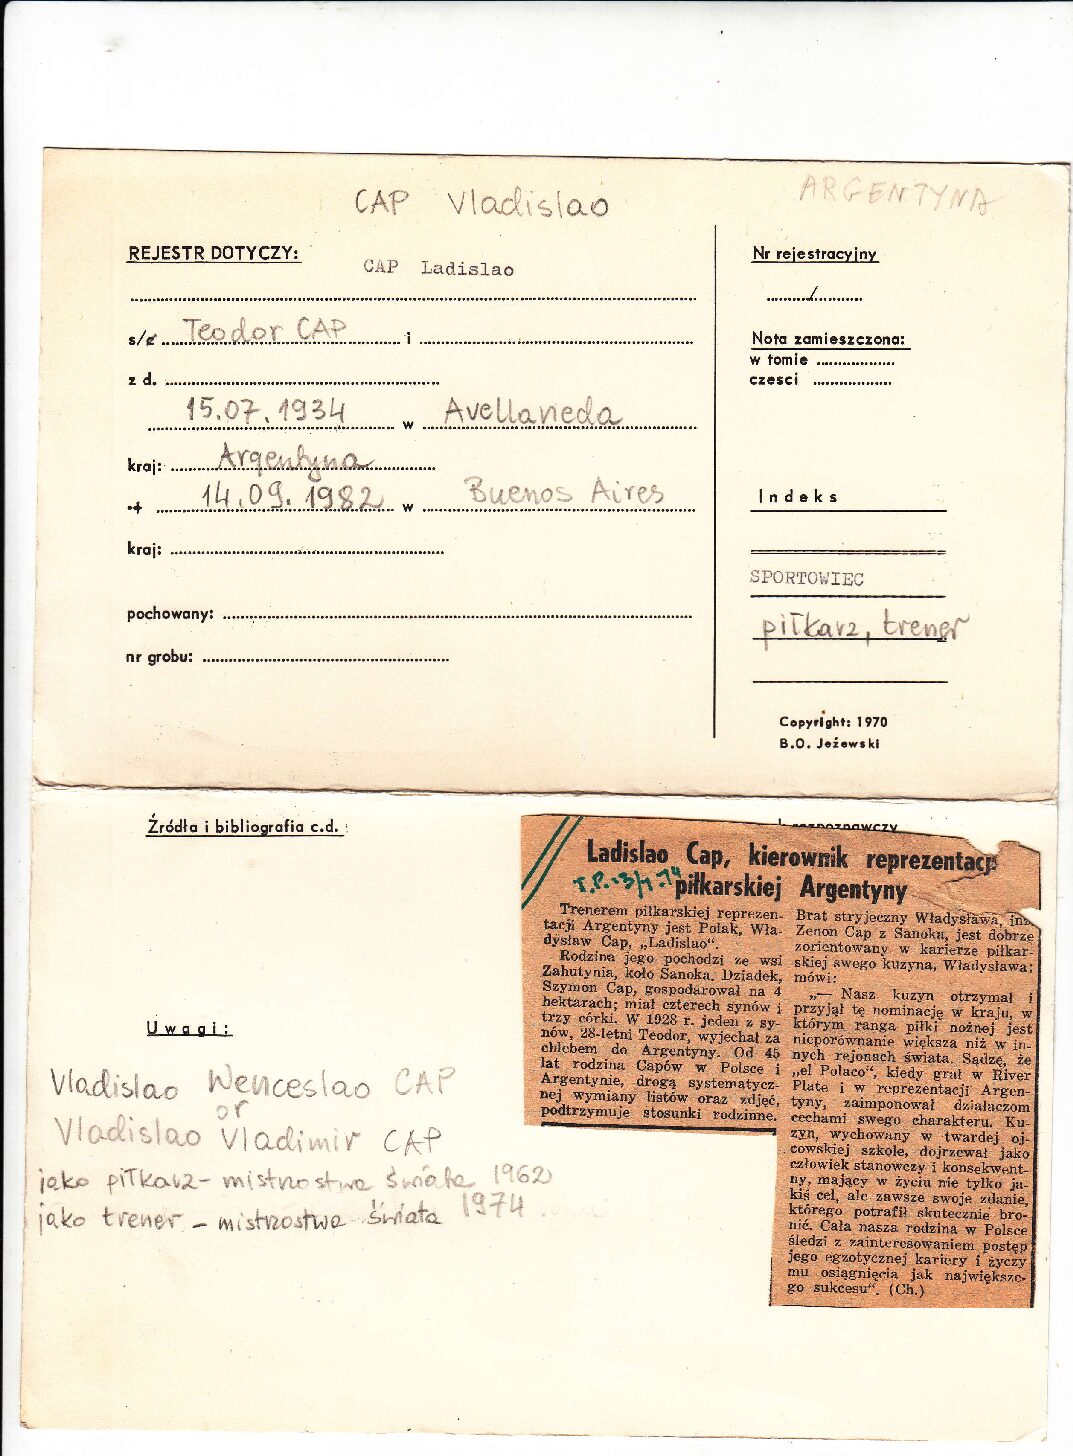 CAP Vladislao
ARGENTYNA
REJESTR DOTYCZY:
CAP Ladislao
s/c Teodor CAP i
z d.
15.07.1934 w Avellaneda
kraj: Argentyna
14.09.1982 w Buenos Aires
kraj:
pochowany:
nr grobu:
Nr rejestracyjny
/
Nota zamieszczona:
w tomie
czesci
Indeks
SPORTOWIEC
piłkarz, trener
Copyright: 1970
B.O. Jeżewski
Źródła i bibliografia c.d.:
rozpoznawczy
Uwagi:
Vladislao Wenceslao CAP
or
Vladislao Vladimir CAP
jako piłkarz - mistrzostwa świata 1962
jako trener - mistrzostwa świata 1974
Ladislao Cap, kierownik reprezentacji
piłkarskiej Argentyny
Trenerem piłkarskiej reprezen-
tacji Argentyny jest Polak, Wła-
dysław Cap, „Ladislao".
Rodzina jego pochodzi ze wsi
Zahutynia, koło Sanoka. Dziadek,
Szymon Cap, gospodarował na 4
hektarach; miał czterech synów i
trzy córki. W 1928 r. jeden z sy-
nów, 28-letni Teodor, wyjechał za
chlebem do Argentyny. Od 45
lat rodzina Capów w Polsce i
Argentynie, drogą systematycz-
nej wymiany listów oraz zdjęć,
podtrzymuje stosunki rodzinne.
Brat stryjeczny Władysława, inż.
Zenon Cap z Sanoka, jest dobrze
zorientowany w karierze piłkar-
skiej swego kuzyna, Władysława;
mówi:
„— Nasz kuzyn otrzymał i
przyjął tę nominację w kraju, w
którym ranga piłki nożnej jest
nieporównanie większa niż w in-
nych rejonach świata. Sądzę, że
„el Polaco", kiedy grał w River
Plate i w reprezentacji Argen-
tyny, zaimponował działaczom
cechami swego charakteru. Ku-
zyn, wychowany w twardej oj-
cowskiej szkole, dojrzewał jako
człowiek stanowczy i konsekwent-
ny, mający w życiu nie tylko ja-
kiś cel, ale zawsze swoje zdanie,
którego potrafił skutecznie bro-
nić. Cała nasza rodzina w Polsce
śledzi z zainteresowaniem postęp
jego egzotycznej kariery i życzy
mu osiągnięcia jak największe-
go sukcesu". (Ch.)